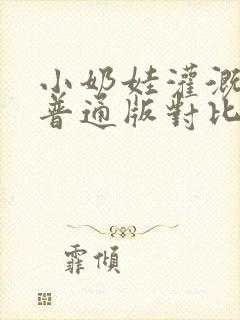 小奶娃灌溉
普通版對比
霏傾